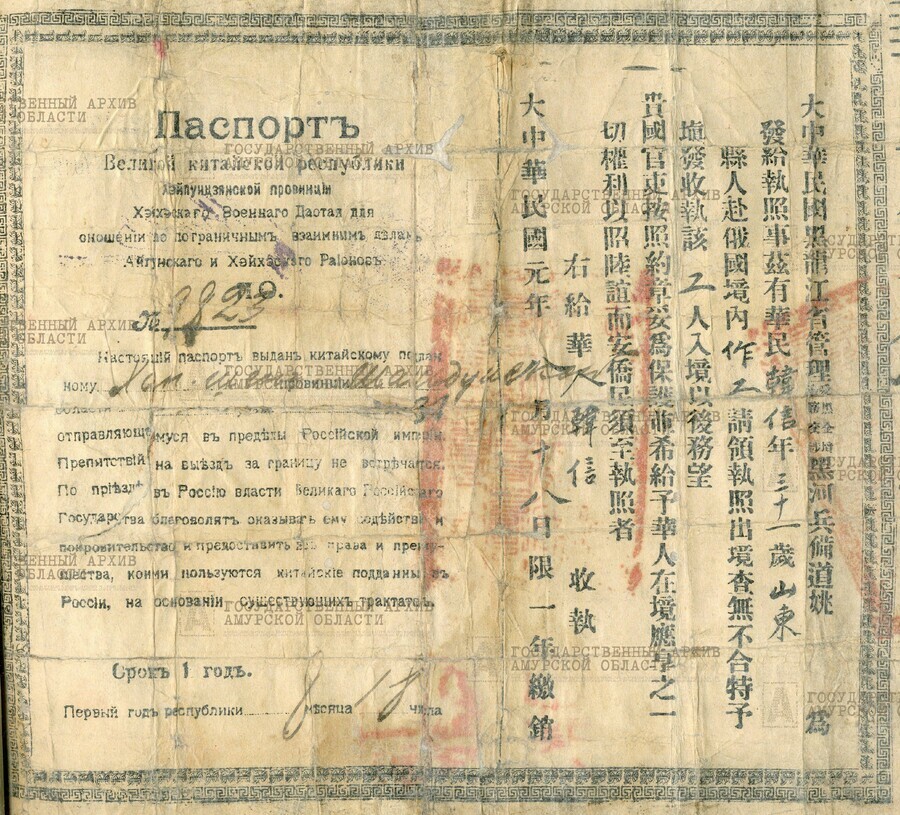 Паспортъ
Великой китайской республики
Хэйлундзянской провинціи
Хэйхэскаго Военнаго Даотая для
сношеній по пограничнымъ взаимнымъ дѣламъ
Айгунскаго и Хэйхэскаго Раіоновъ
№ 9823
Настоящій паспортъ выданъ китайскому поддан
ному Хан-шинъ провинціи Шандунской
области 31
отправляющемуся въ предѣлы Россійской имперіи
Препятствій на выѣздъ за границу не встрѣчается.
По пріѣздѣ въ Россію власти Великаго Россійскаго
Государства благоволятъ оказывать ему содѣйствіе и
покровительство и предоставить всѣ права и преиму-
щества, коими пользуются китайскіе подданные въ
Россіи, на основаніи существующихъ трактатовъ.
Срокъ 1 годъ.
Первый годъ республики 8 мѣсяца 18 числа
大中華民國黑龍江省管理 黑河兵備道姚 為
發給執照事茲有華民韓信年三十一歲山東
縣人赴俄國境内作工請領執照出境查無不合特予
填發收執該工人入境以後務望
貴國官吏按照約章妥為保護並希給予華人在境應享之一
切權利以昭陸誼而安僑民須至執照者
右給華 韓信 收執
大中華民國元年 月十八日限一年繳銷
ГОСУДАРСТВЕННЫЙ АРХИВ
АМУРСКОЙ ОБЛАСТИ